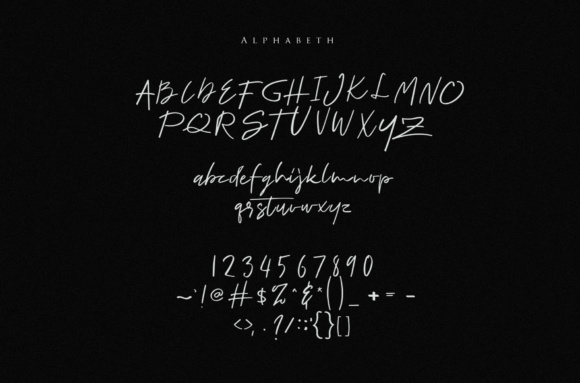 ALPHABETH
ABCDEFGHIJKLMNO
PQRSTUVWXYZ
abcdefghijklmnop
qrstuvwxyz
1234567890
~`!@#$%^&*()_+=-
<>,.?/:;"'{}[]